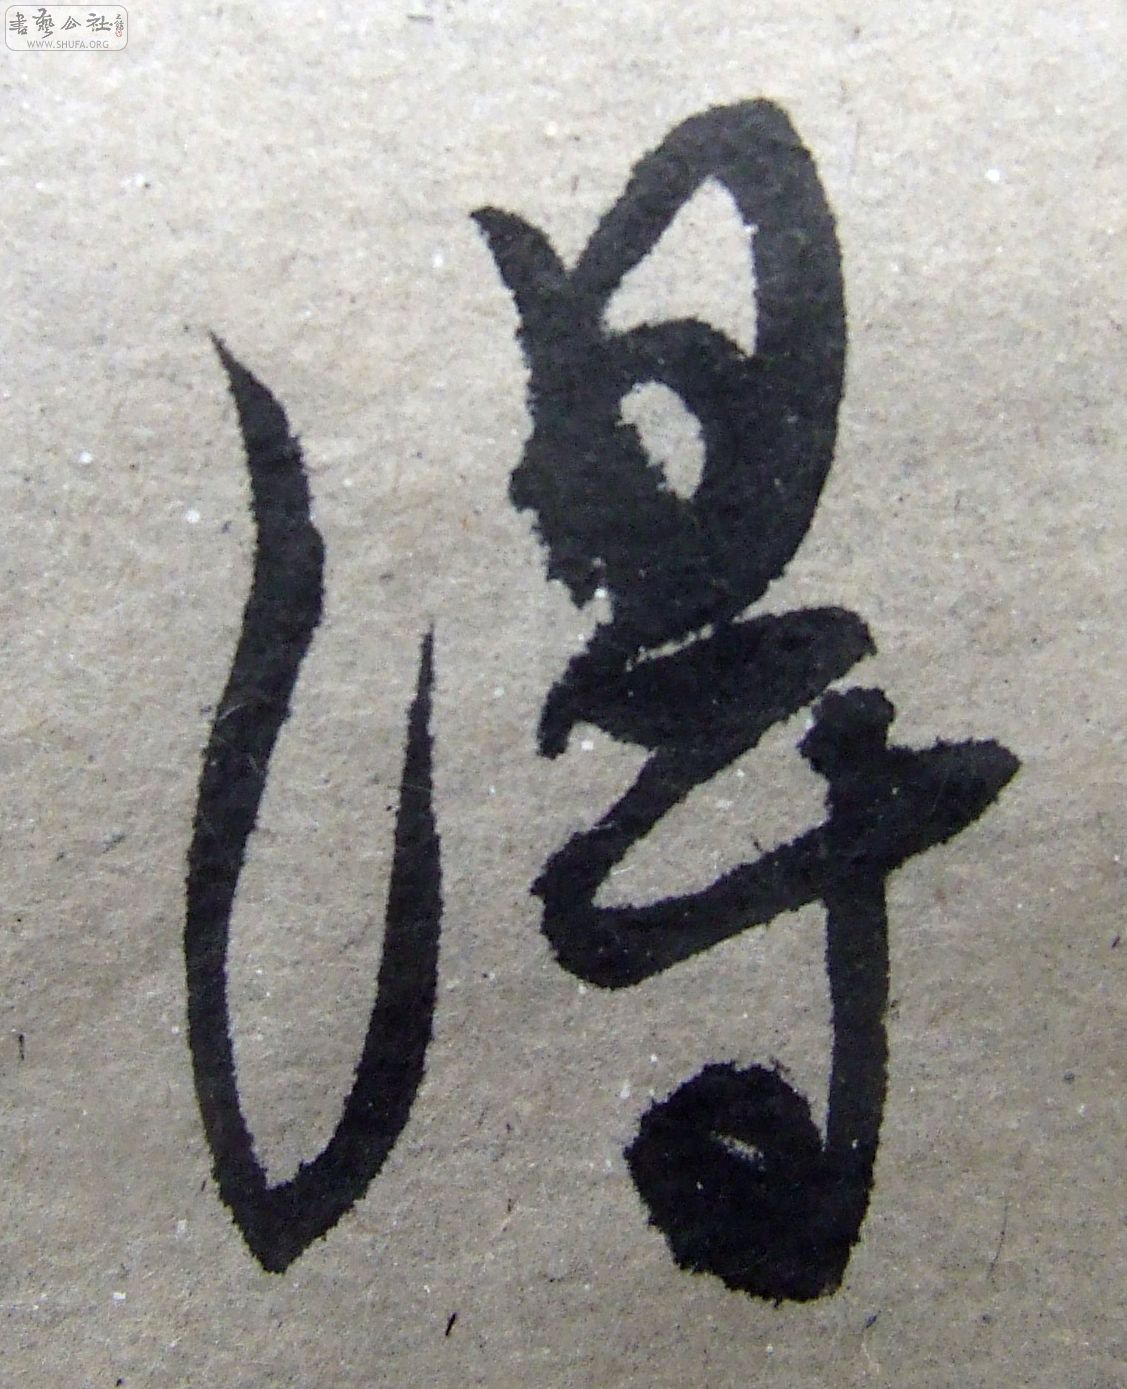 書藝公社
WWW.SHUFA.ORG
得